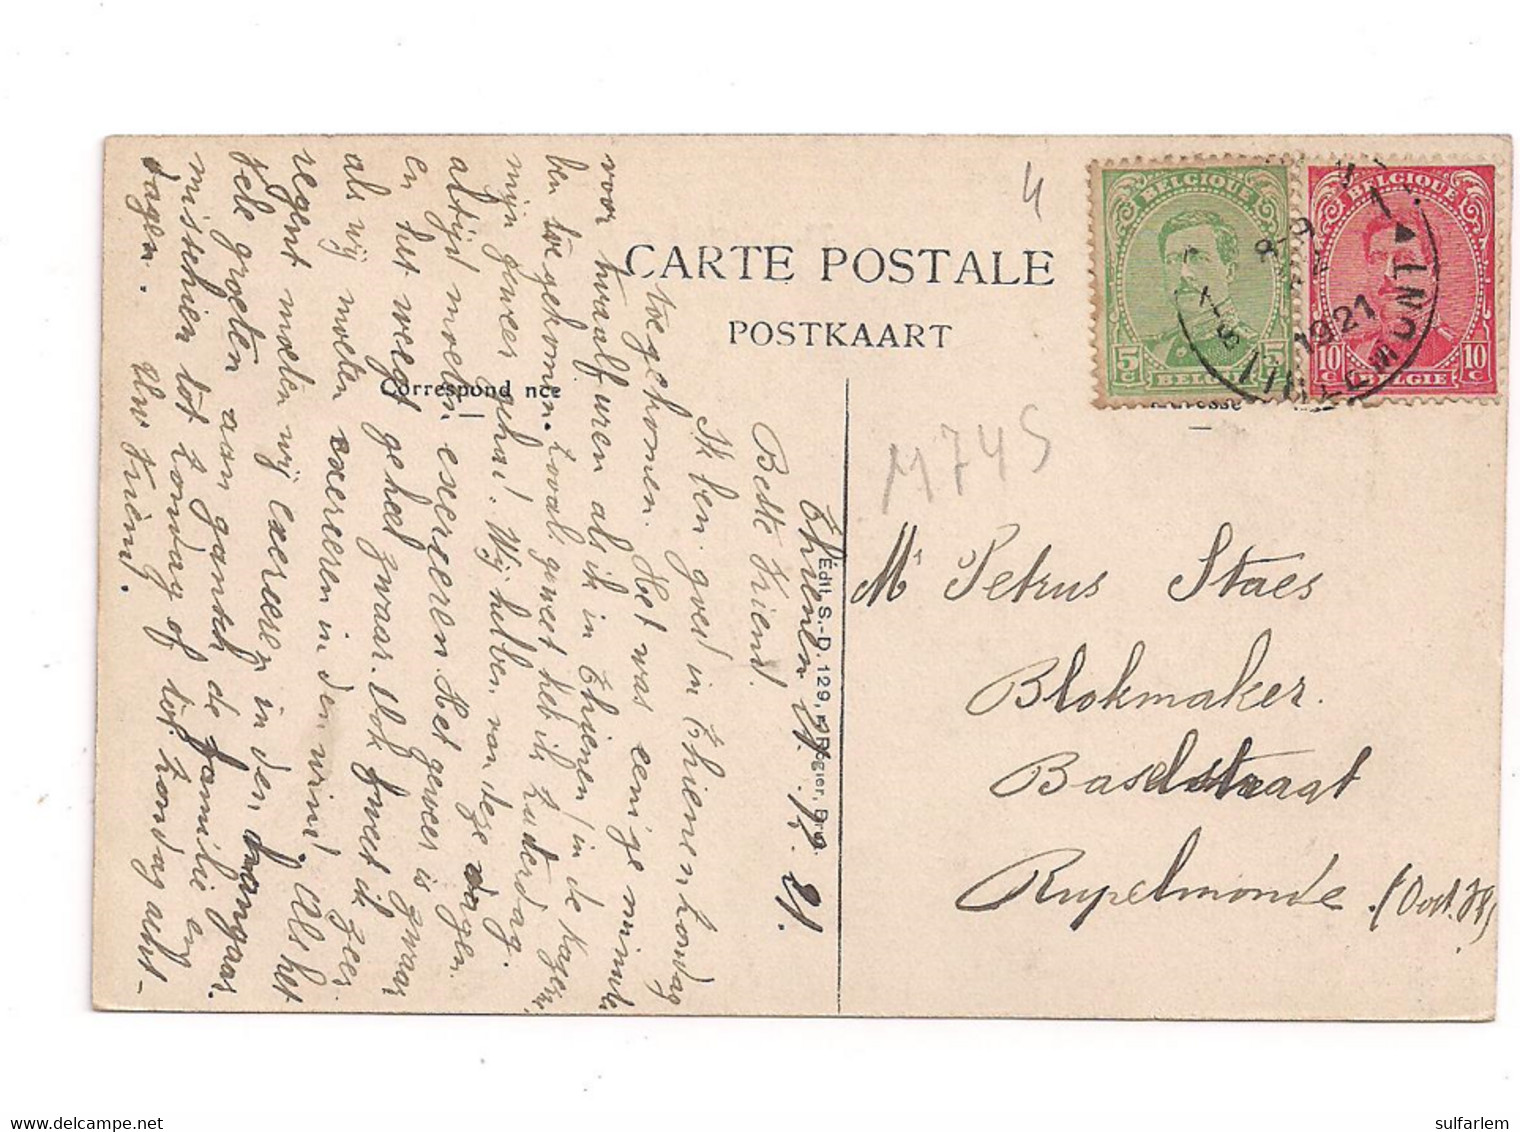 4
CARTE POSTALE
POSTKAART
Correspond nce
BELGIQUE
5c 5c
BELGIË
BELGIQUE
10c 10c
BELGIË
8-9
1921
TIRLEMONT
M745
Edit. S.-D. 129, r. Rogier, Brux.
Thienen
21.
Beste Friend.
Ik ben goed in Thienen zondag
toegekomen. Het was eenige minute
voor twaalf uren als ik in Thienen in de kazern
ben toegekomen. Zooals gweet heb ik zaterdag
mijn geweer gehad. Wij hebben van deze dagen
altijd moeten exerceren. Het geweer is zwaar
en het weegt geheel zwaar. Ook gweet ik
als wij moeten exerceren in den wind. Als het
regent moeten wij exerceren in den hangaar.
Vele groeten aan gansch de familie en
misschien tot zondag of tot zondag acht-
dagen.
Uw Friend.
Mr Petrus Staes
Blokmaker.
Baselstraat
Rupelmonde (Oost. Vl)
sulfarlem